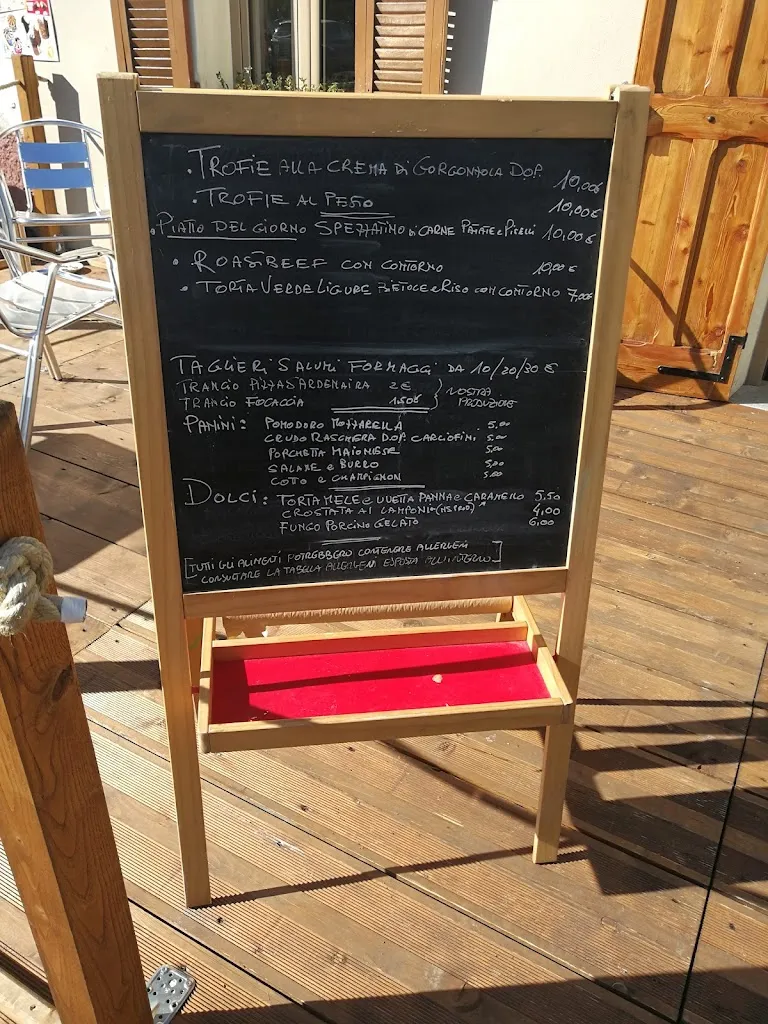 • TROFIE ALLA CREMA DI GORGONZOLA DOP. 10,00€
• TROFIE AL PESTO 10,00€
• PIATTO DEL GIORNO SPEZZATINO DI CARNE PATATE e PISELLI 10,00€
• ROASTBEEF CON CONTORNO 10,00 €
• TORTA VERDE LIGURE BIETOLE e RISO CON CONTORNO 7,00€
TAGLIERI SALUMI FORMAGGI DA 10/20/30 €
TRANCIO PIZZA D'ARDENAIRA 2€
TRANCIO FOCACCIA 1.50€
NOSTRA
PRODUZIONE
PANINI: POMODORO MOZZARELLA 5,00
CRUDO RASCHERA DOP. CARCIOFINI 5,00
PORCHETTA MAIONESE 5,00
SALAME e BURRO 5,00
COTTO e CHAMPIGNON 5,00
DOLCI: TORTA MELE e UVETTA PANNA e CARAMELLO 5,50
CROSTATA AI LAMPONI 4,00
FUNGO PORCINO GELATO 6,00
[TUTTI GLI ALIMENTI POTREBBERO CONTENERE ALLERGENI
CONSULTARE LA TABELLA ALLERGENI ESPOSTA ALL'INTERNO.]